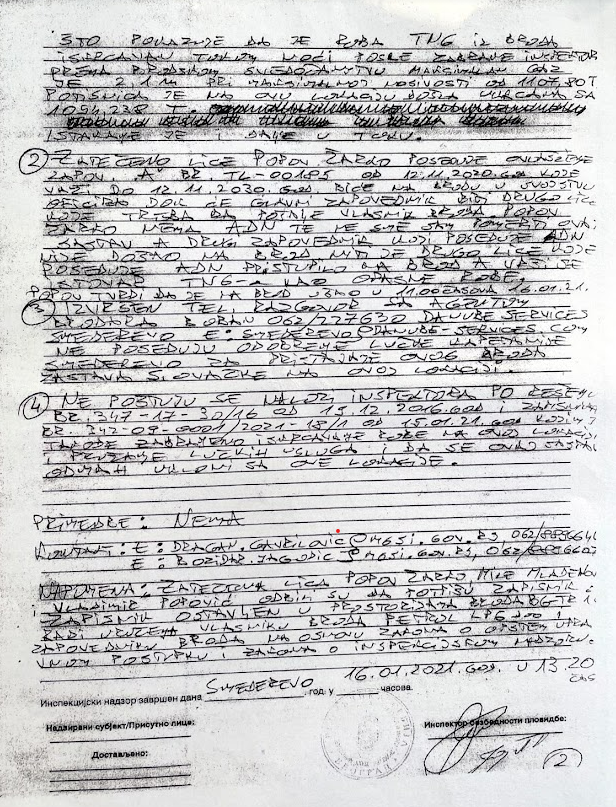 ŠTO POKAZUJE DA JE ROBA TNG IZ BRODA
ISKRCAVAN TOKOM NOĆI POSLE ZABRANE INSPEKTOR
PREMA BRODSKOM SVEDOČANSTVU MAKSIMALAN GAZ
JE 2.1m PRI MAKSIMALNOJ NOSIVOSTI OD
JE NA OVU LOKACIJU DOŠLA UKRCANA SA
1054,238 T.
ISTRAGE JE I DALJE U TOKU.
② ZATEČENO LICE POPOV ŽARKO POSEDUJE OVLAŠĆENJE
ZAPOV. A BR. TL-00185 OD 12.11.2020.GOD KOJE
VAŽI DO 12.11.2030.GOD. BIĆE NA BRODU U SVOJSTVU
OFICIRA DOK ĆE GLAVNI ZAPOVEDNIK BITI DRUGO LICE
KOJE TREBA DA POŠALJE VLASNIK BRODA. POPOV
ŽARKO NEMA ADN TE NE SME SAM POMERATI OVAJ
SASTAV A DRUGI ZAPOVEDNIK KOJI POSEDUJE ADN
NIJE DOŠAO NA BROD NITI JE DRUGO LICE KOJE
POSEDUJE ADN PRISTUPILO NA BROD A VRŠI SE
ISTOVAR TNG-a KAO OPASNE ROBE.
POPOV TVRDI DA JE NA BROD UŠAO U 11.00 ČASOVA 16.01.21.
③ IZVRŠEN TEL. RAZGOVOR SA AGENTOM
BRODARA BOBAN 062/227630 DANUBE SERVICES
SMEDEREVO E: SMEDEREVO@DANUBE-SERVICES.COM
NE POSEDUJU ODOBRENJE LUČKE KAPETANIJE
SMEDEREVO ZA PRISTAJANJE OVOG BRODA
ZASTAVA SLOVAČKE NA OVOJ LOKACIJI.
④ NE POŠTUJU SE NALOZI INSPEKTORA PO REŠENJU
BR. 347-17-30/16 OD 15.12.2016.GOD I ZAPISNIKU
BR. 342-09-0001/2021-18/1 OD 15.01.21.GOD KOJIM J
TAKOĐE ZABRANJENO ISKRCAVANJE ROBE NA OVOJ LOKACIJI
I PRUŽANJE LUČKIH USLUGA I DA SE OVAJ SASTAV
ODMAH UKLONI SA OVE LOKACIJE.
PRIMEDBE: NEMA
KONTAKT: E: DRAGAN.GAVRILOVIC@MGSI.GOV.RS,
E: BOZIDAR.JAGODIC@MGSI.GOV.RS,
NAPOMENA: ZATEČENA LICA POPOV ŽARKO, MILE MLAĐENOV
I VLADIMIR POPOVIĆ ODBILI SU DA POTPIŠU ZAPISNIK.
ZAPISNIK OSTAVLJEN U PROSTORIJAMA BRODA
RADI URUČENJA VLASNIKU BRODA PETROL LPG DOO I
ZAPOVEDNIKU BRODA NA OSNOVU ZAKONA O OPŠTEM UPRA
VNOM POSTUPKU I ZAKONA O INSPEKCIJSKOM NADZORU.
16.01.2021.GOD. U 13.20
ČAS
Инспекцијски надзор завршен дана SMEDEREVO год. у часова.
Надзирани субјект/Присутно лице:
Инспектор безбедности пловидбе:
Достављено:
②